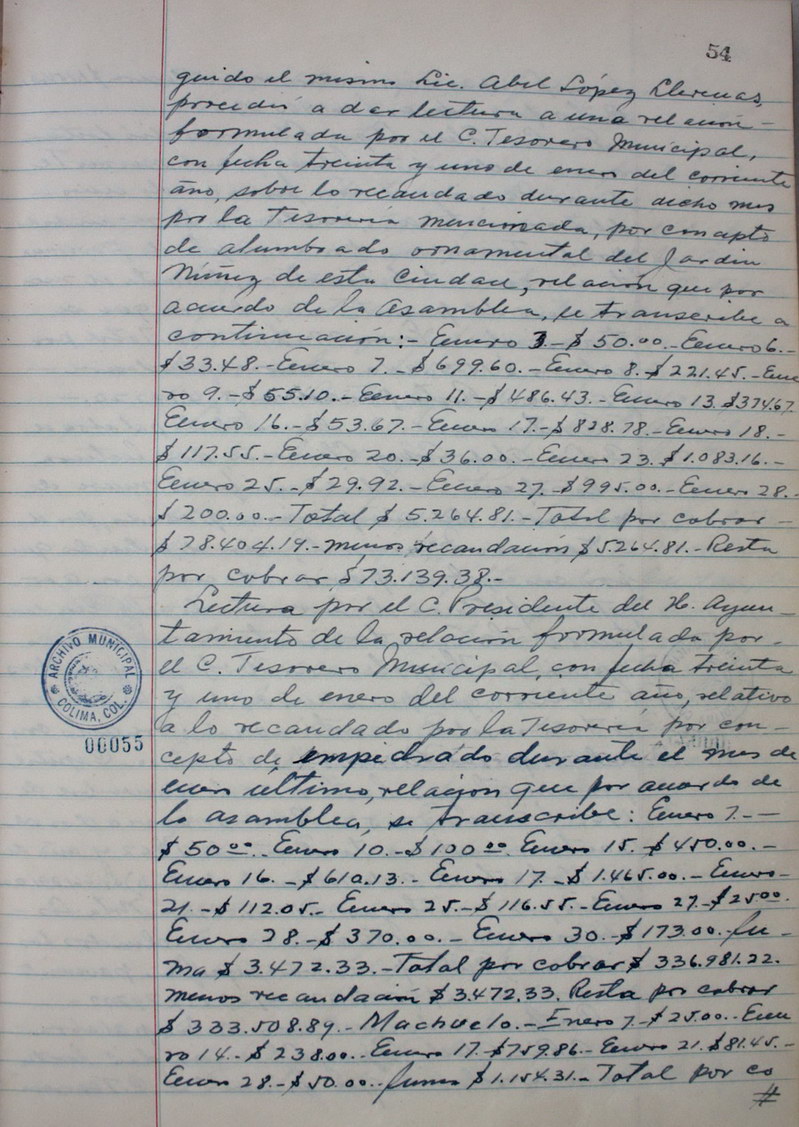 54
guido el mismo Lic. Abel López Llerenas,
procedió a dar lectura a una relación-
formulada por el C. Tesorero Municipal,
con fecha treinta y uno de enero del corriente
año, sobre lo recaudado durante dicho mes
por la Tesorería mencionada, por concepto
de alumbrado ornamental del Jardín
Núñez de esta Ciudad, relación que por
acuerdo de la Asamblea, se transcribe a
continuación:- Enero 3.-$50.00.-Enero 6.-
$33.48.-Enero 7.-$699.60.-Enero 8.-$221.45.-Ene
ro 9.-$55.10.-Enero 11.-$486.43.-Enero 13.$374.67.
Enero 16.-$53.67.-Enero 17.-$828.78.-Enero 18.-
$117.55.-Enero 20.-$36.00.-Enero 23.$1.083.16.-
Enero 25.-$29.92.-Enero 27.-$995.00.-Enero 28.-
$200.00.-Total $5.264.81.-Total por cobrar-
$78.404.19.-menos recaudación $5.264.81.-Resta
por cobrar $73.139.38.-
Lectura por el C. Presidente del H. Ayun-
tamiento de la relación formulada por
el C. Tesorero Municipal, con fecha treinta
y uno de enero del corriente año, relativo
a lo recaudado por la Tesorería por con-
cepto de empedrado durante el mes de
enero último, relación que por acuerdo de
la asamblea, se transcribe: Enero 7.-
$50.00.-Enero 10.-$100.00 Enero 15.-$450.00.-
Enero 16.-$610.13.-Enero 17.-$1.465.00.-Enero-
21.-$112.05.-Enero 25.-$116.55.-Enero 27.-$25.00.
Enero 28.-$370.00.-Enero 30.-$173.00. Su-
ma $3.472.33.-Total por cobrar $336.981.22.
menos recaudación $3.472.33. Resta por cobrar
$333.508.89.-Machuelo.-Enero 7.-$25.00.-Ene
ro 14.-$238.00.-Enero 17.-$759.86.-Enero 21.$81.45.-
Enero 28.-$50.00.-Suma $1.154.31.-Total por co
#
ARCHIVO MUNICIPAL
COLIMA, COL.
00055